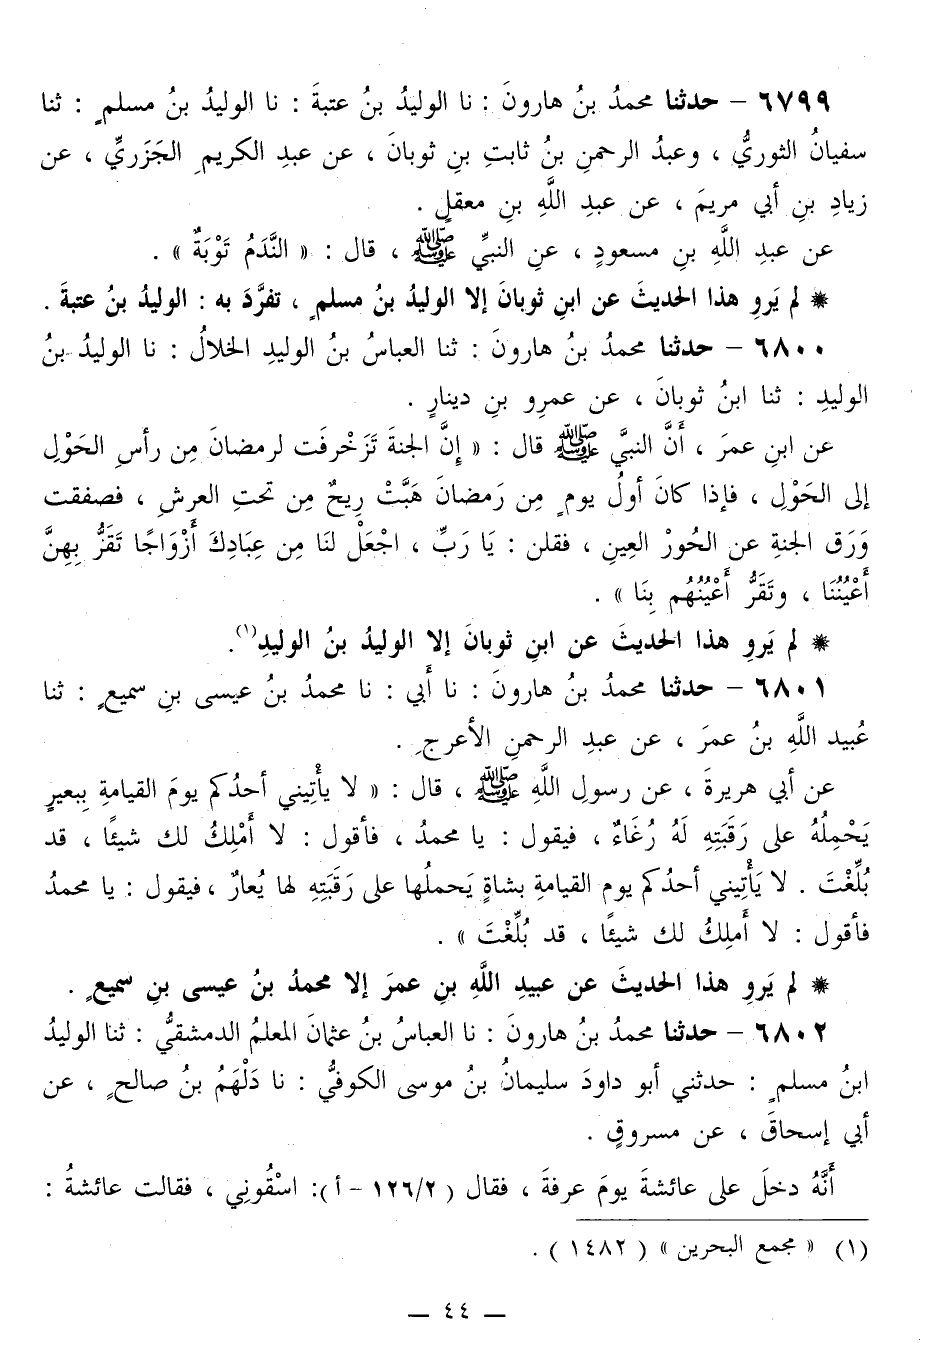 ٦٧٩٩ – حدثنا محمدُ بنُ هارونَ : نا الوليدُ بنُ عتبةَ : نا الوليدُ بنُ مسلمٍ : ثنا
سفيانُ الثوريُّ ، وعبدُ الرحمنِ بنُ ثابتِ بنِ ثوبانَ ، عن عبدِ الكريمِ الجَزَريِّ ، عن
زيادِ بنِ أبي مريمَ ، عن عبدِ اللَّهِ بنِ معقلٍ .
عن عبدِ اللَّهِ بنِ مسعودٍ ، عنِ النبيِّ ﷺ ، قال : « النَّدَمُ تَوْبَةٌ » .
* لم يَروِ هذا الحديثَ عن ابنِ ثوبانَ إلا الوليدُ بنُ مسلمٍ ، تفرَّدَ به : الوليدُ بنُ عتبةَ .
٦٨٠٠ – حدثنا محمدُ بنُ هارونَ : ثنا العباسُ بنُ الوليدِ الخلالُ : نا الوليدُ بنُ
الوليدِ : ثنا ابنُ ثوبانَ ، عن عمرِو بنِ دينارٍ .
عن ابنِ عمرَ ، أَنَّ النبيَّ ﷺ قال : « إِنَّ الجنةَ تَزَخْرفَت لرمضانَ مِن رأسِ الحَوْلِ
إلى الحَوْلِ ، فإذا كانَ أولُ يومٍ مِن رَمضانَ هَبَّتْ رِيحٌ مِن تحتِ العرشِ ، فصفقت
وَرَق الجنةِ عن الحُورْ العِينِ ، فقلن : يَا رَبِّ ، اجْعَلْ لنَا مِن عِبَادِكَ أَزْوَاجًا تَقَرُّ بِهِنَّ
أَعْيُنُنَا ، وتَقَرُّ أَعْيُنُهُم بِنَا » .
* لم يَروِ هذا الحديثَ عن ابنِ ثوبانَ إلا الوليدُ بنُ الوليدِ(١).
٦٨٠١ – حدثنا محمدُ بنُ هارونَ : نا أَبي : نا محمدُ بنُ عيسى بنِ سميعٍ : ثنا
عُبيد اللَّهِ بنُ عمرَ ، عن عبدِ الرحمنِ الأعرجِ .
عن أبي هريرةَ ، عن رسولِ اللَّهِ ﷺ ، قال : « لا يأْتِيني أحدُكم يومَ القيامةِ بِبعيرٍ
يَحْمِلُهُ على رَقَبَتِهِ لَهُ رُغَاءٌ ، فيقول : يا محمدُ ، فأقول : لا أَمْلِكُ لك شيئًا ، قد
بُلِّغْتَ . لا يَأْتِيني أحدُكم يوم القيامةِ بشاةٍ يَحملُها على رَقَبَتِهِ لها يُعارٌ ، فيقول : يا محمدُ
فأقول : لا أَملِكُ لك شيئًا ، قد بُلِّغْتَ » .
* لم يَروِ هذا الحديثَ عن عبيدِ اللَّهِ بنِ عمرَ إلا محمدُ بنُ عيسى بنِ سميعٍ .
٦٨٠٢ – حدثنا محمدُ بنُ هارونَ : نا العباسُ بنُ عثمانَ المعلمُ الدمشقيُّ : ثنا الوليدُ
ابنُ مسلمٍ : حدثني أبو داودَ سليمانُ بنُ موسى الكوفيُّ : نا دَلْهَمُ بنُ صالحٍ ، عن
أبي إسحاقَ ، عن مسروقٍ .
أَنَّهُ دخلَ على عائشةَ يومَ عرفةَ ، فقال ( ١٢٦/٢ – أ ): اسْقُونِي ، فقالت عائشةُ :
(١) « مجمع البحرين » ( ١٤٨٢ ) .
— ٤٤ —